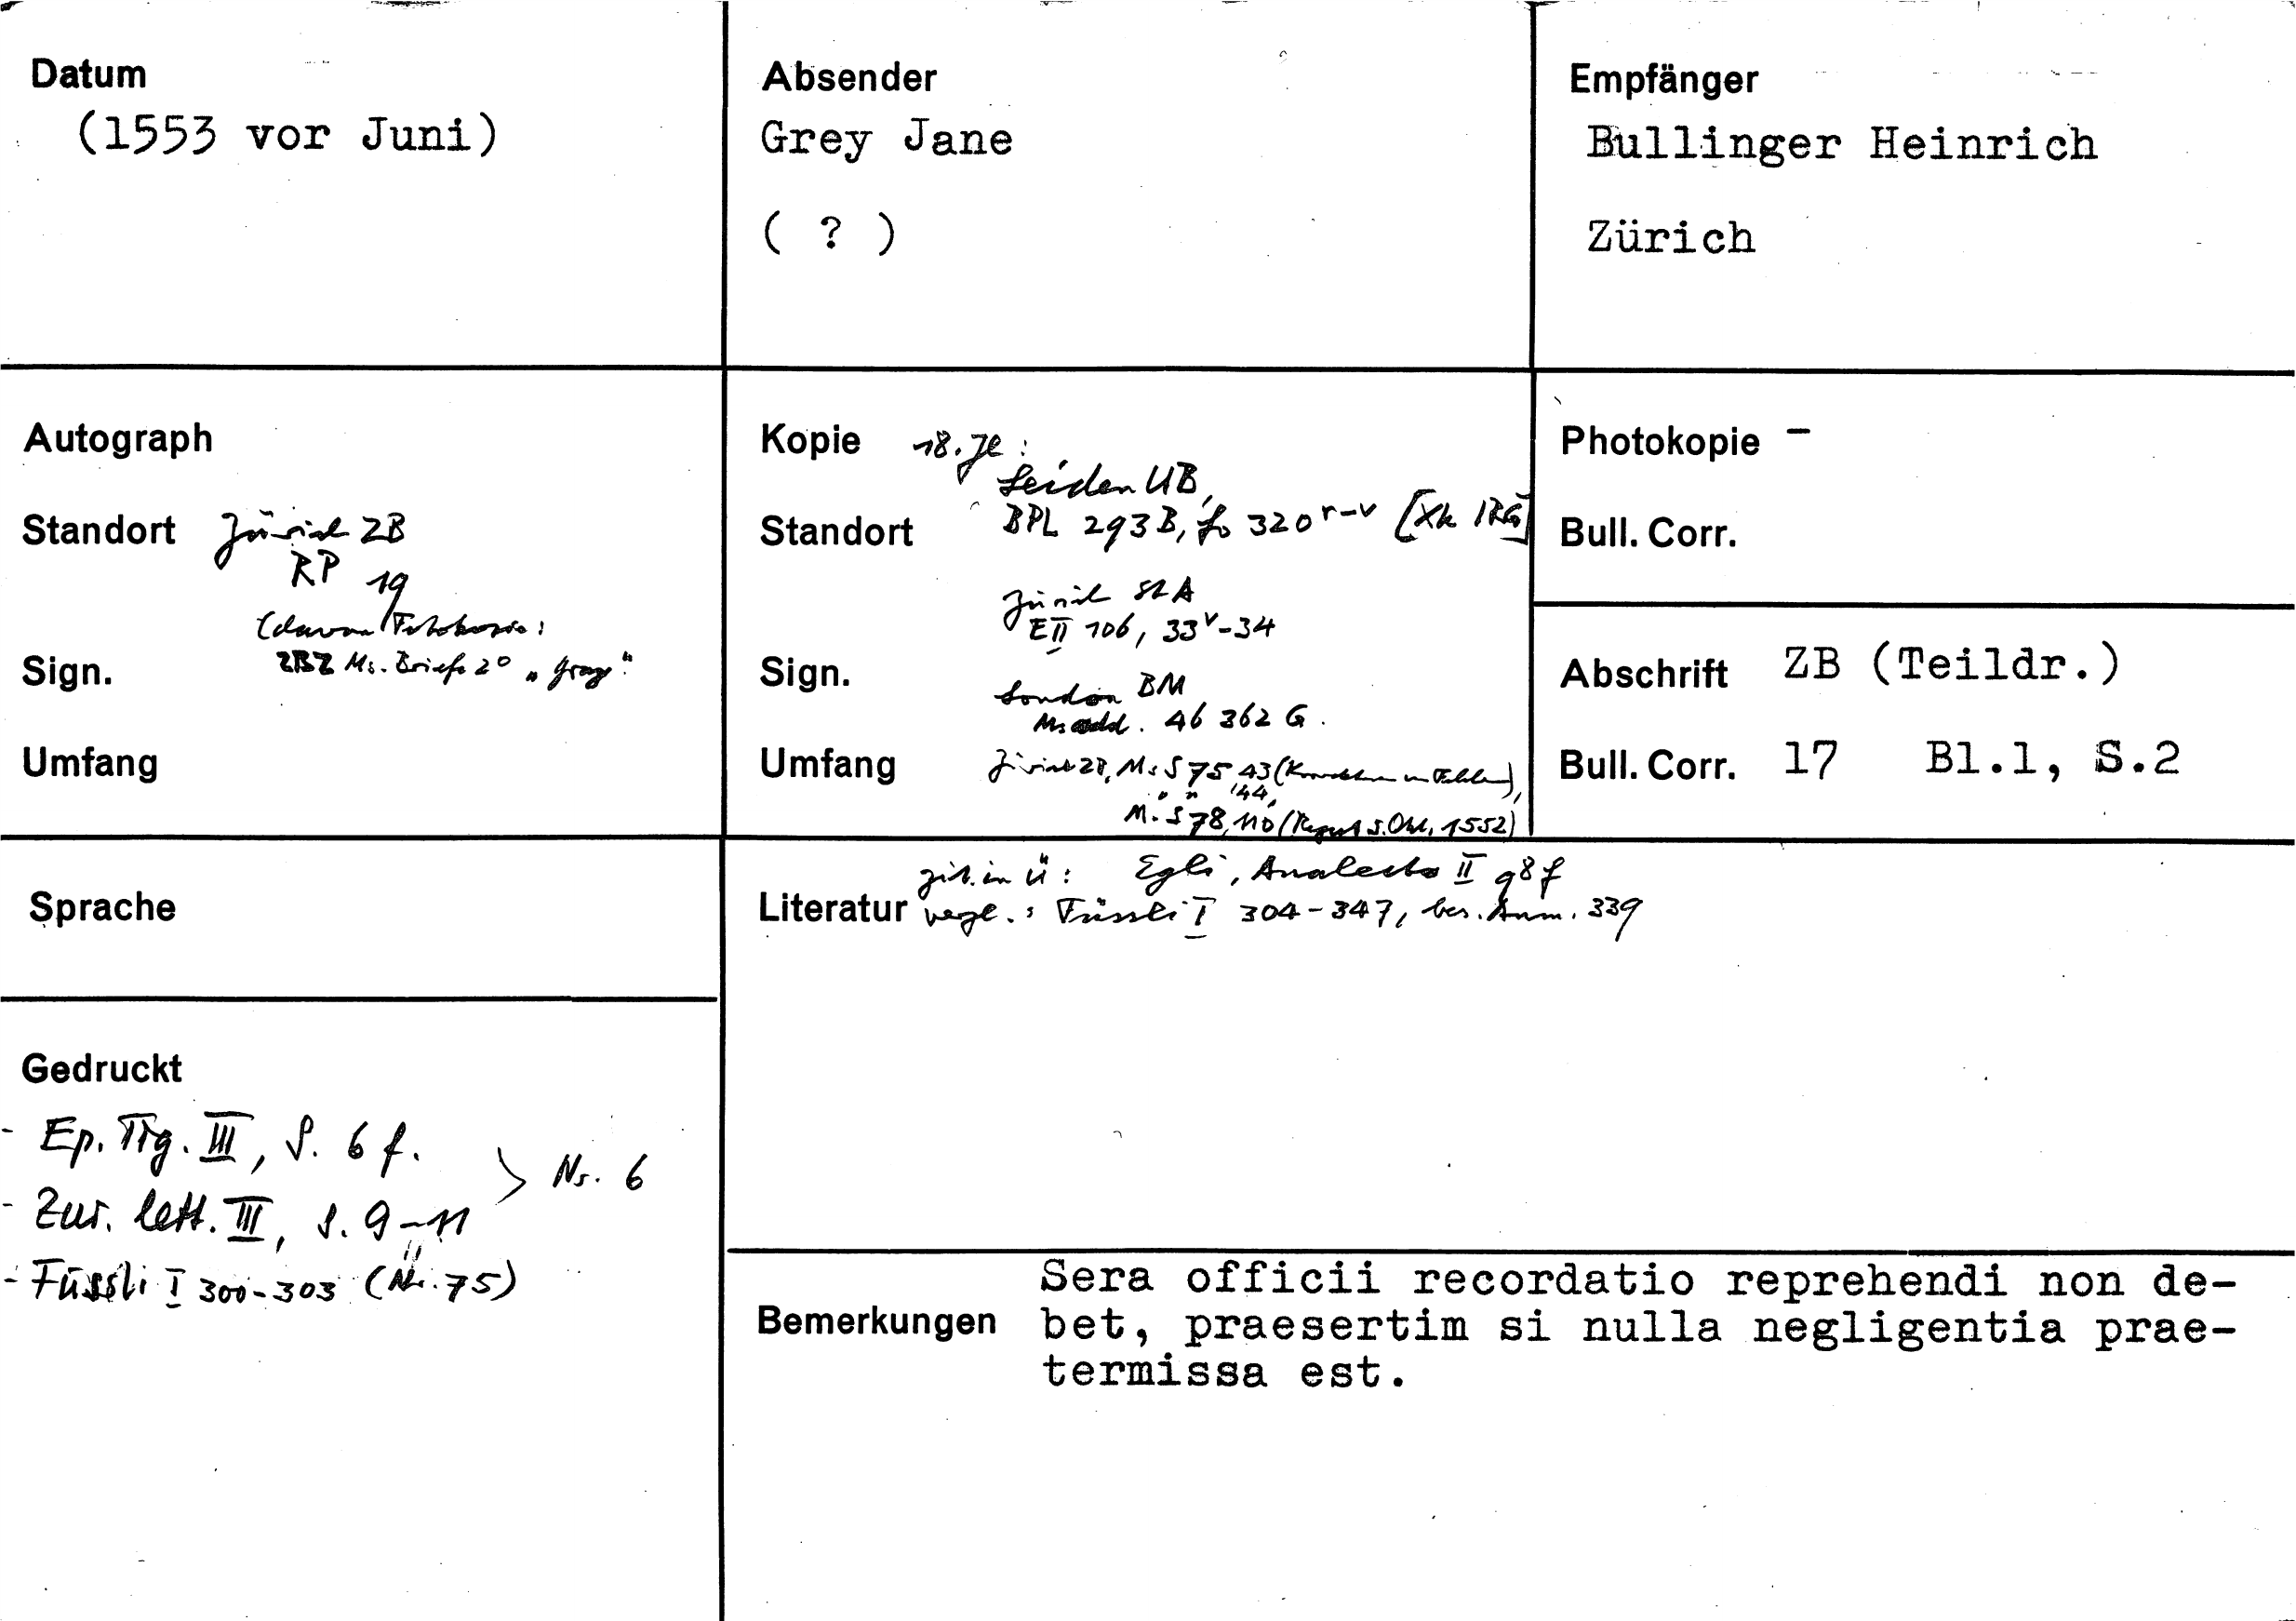 Datum
(1553 vor Juni)
Absender
Grey Jane
( ? )
Empfänger
Bullinger Heinrich
Zürich
Autograph
Standort Zürich ZB
RP 19
(davon Fotokopie:
Sign. ZBZ Ms. Briefe 20 „Gray"
Umfang
Kopie 18. Jh:
Leiden UB,
Standort BPL 293B, fo 320 r-v [Xk IRG]
Zürich StA
E II 106, 33v-34
Sign.
London BM
Ms add. 46 362 G.
Umfang Zürich ZB, Ms S 75, 43
" " 44,
Ms S 78, 110 (Regest s. Okt. 1552)
Photokopie -
Bull. Corr.
Abschrift ZB (Teildr.)
Bull. Corr. 17 Bl.1, S.2
Sprache
Literatur zit. in Ü: Egli, Analecta II 98f
vergl.: Füssli I 304-347, bes. Anm. 339
Gedruckt
- Ep. Tig. III, S. 6 f.
> Nr. 6
- Zur. lett. III, S. 9-11
- Füssli I 300-303 (Nr. 75)
Bemerkungen
Sera officii recordatio reprehendi non de-
bet, praesertim si nulla negligentia prae-
termissa est.